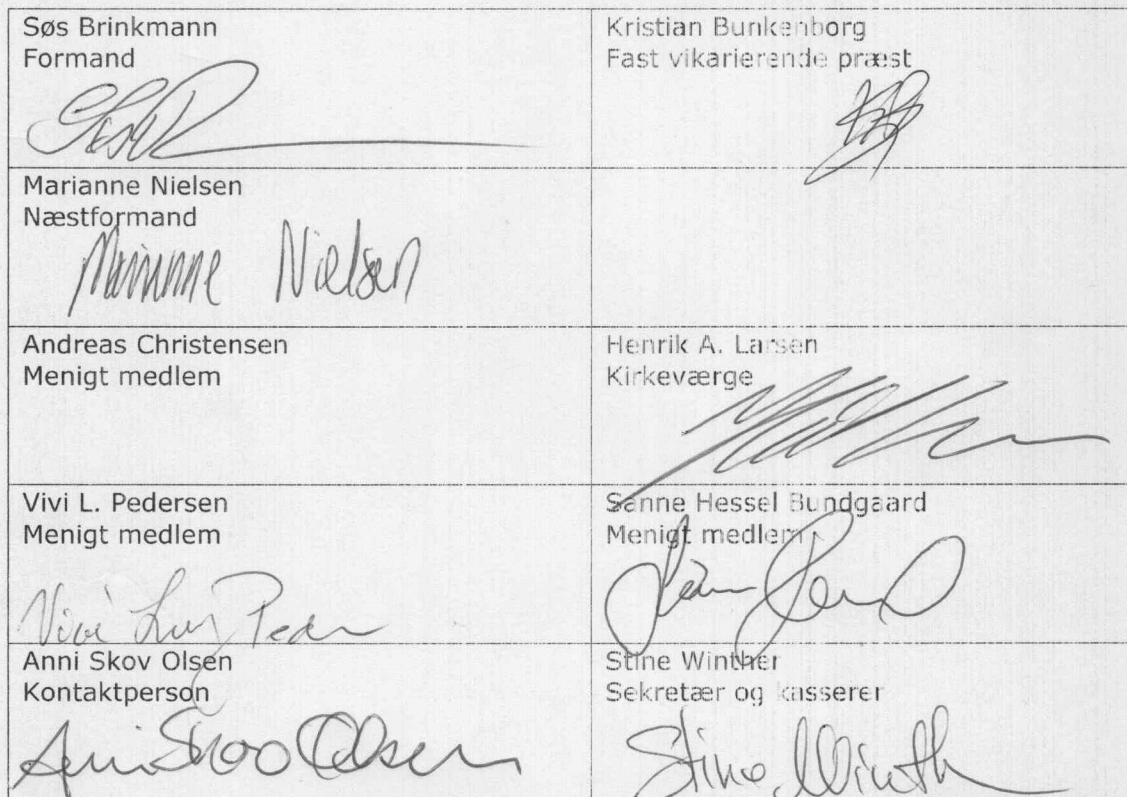 Søs Brinkmann
Formand
Kristian Bunkenborg
Fast vikarierende præst
Marianne Nielsen
Næstformand
Marianne Nielsen
Andreas Christensen
Menigt medlem
Henrik A. Larsen
Kirkeværge
Vivi L. Pedersen
Menigt medlem
Vivi
Sanne Hessel Bundgaard
Menigt medlem
Anni Skov Olsen
Kontaktperson
Anni Skov Olsen
Stine Winther
Sekretær og kasserer
Stine Winth